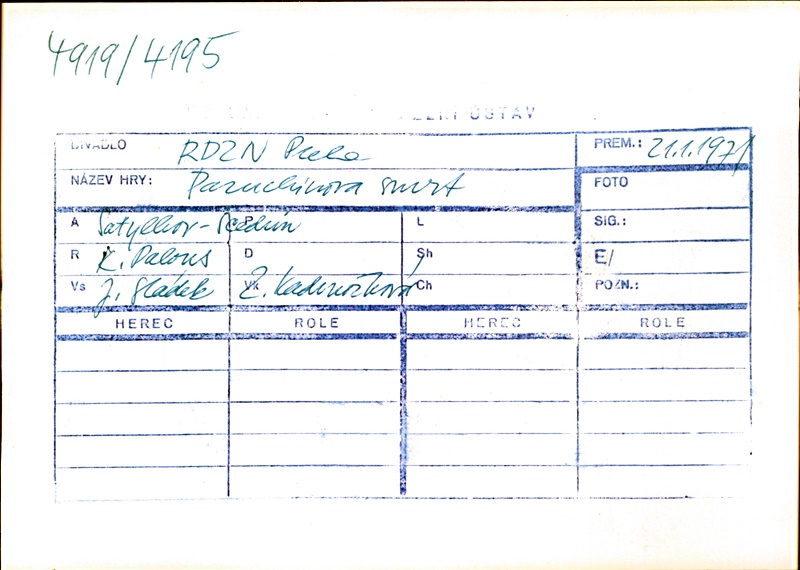 4919/4195
ÚSTAV
DIVADLO RDZN Praha PREM.: 21.1.1971
NÁZEV HRY: Pazuchinova smrt FOTO
A Saltykov-Ščedrin P L SIG.:
R K. Palous D Sh E/
Vs J. Sládek Vk Z. Kadrnožková Ch POZN.:
HEREC ROLE HEREC ROLE